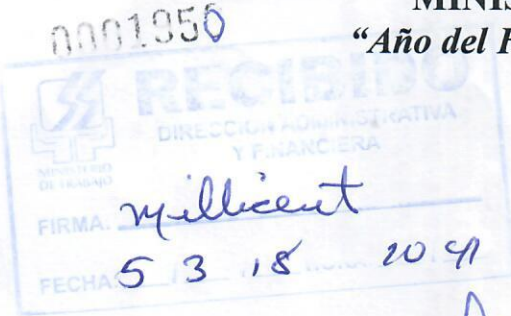 0001950
MINIS
"Año del F
RECIBIDO
DIRECCION ADMINISTRATIVA
Y FINANCIERA
MINISTERIO
DE TRABAJO
FIRMA: Millicent
FECHA: 5 / 3 / 18 HORA: 10 41